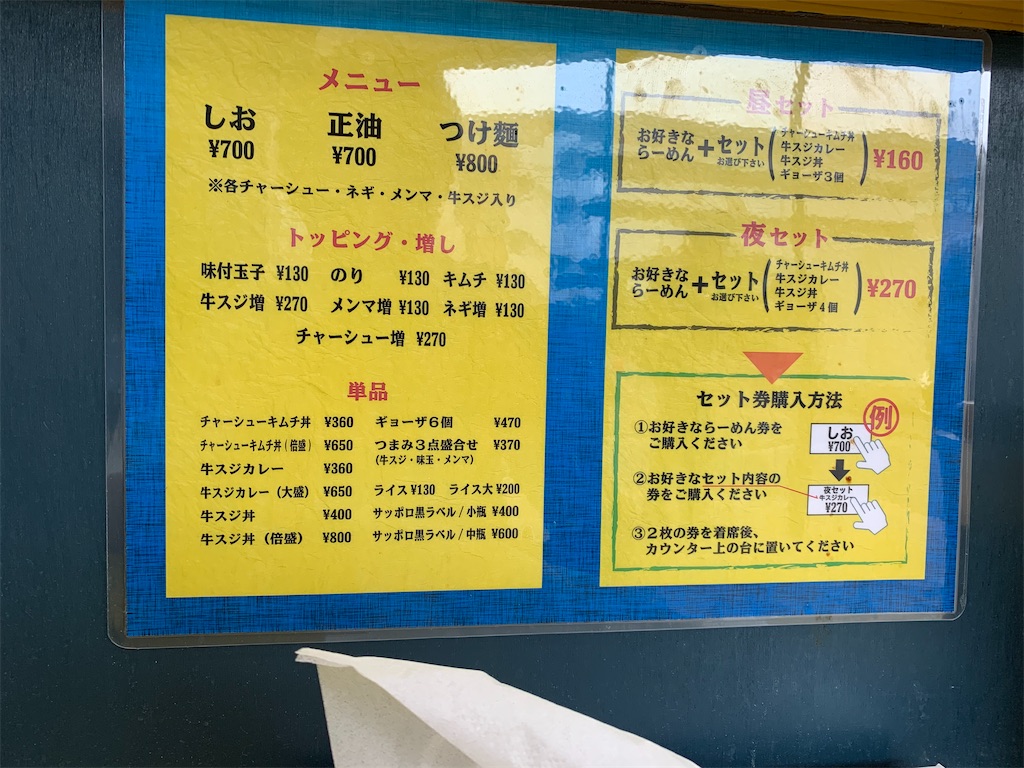 メニュー
しお 正油 つけ麺
¥700 ¥700 ¥800
※各チャーシュー・ネギ・メンマ・牛スジ入り
トッピング・増し
味付玉子 ¥130 のり ¥130 キムチ ¥130
牛スジ増 ¥270 メンマ増 ¥130 ネギ増 ¥130
チャーシュー増 ¥270
単品
チャーシューキムチ丼 ¥360
チャーシューキムチ丼(倍盛) ¥650
牛スジカレー ¥360
牛スジカレー(大盛) ¥650
牛スジ丼 ¥400
牛スジ丼(倍盛) ¥800
ギョーザ6個 ¥470
つまみ3点盛合せ ¥370
(牛スジ・味玉・メンマ)
ライス¥130 ライス大¥200
サッポロ黒ラベル/小瓶 ¥400
サッポロ黒ラベル/中瓶 ¥600
昼セット
お好きな
らーめん
+セット
お選び下さい
チャーシューキムチ丼
牛スジカレー
牛スジ丼
ギョーザ3個
¥160
夜セット
お好きな
らーめん
+セット
お選び下さい
チャーシューキムチ丼
牛スジカレー
牛スジ丼
ギョーザ4個
¥270
セット券購入方法
①お好きならーめん券を
ご購入ください
②お好きなセット内容の
券をご購入ください
③2枚の券を着席後、
カウンター上の台に置いてください
例
しお
¥700
夜セット
牛スジカレー
¥270